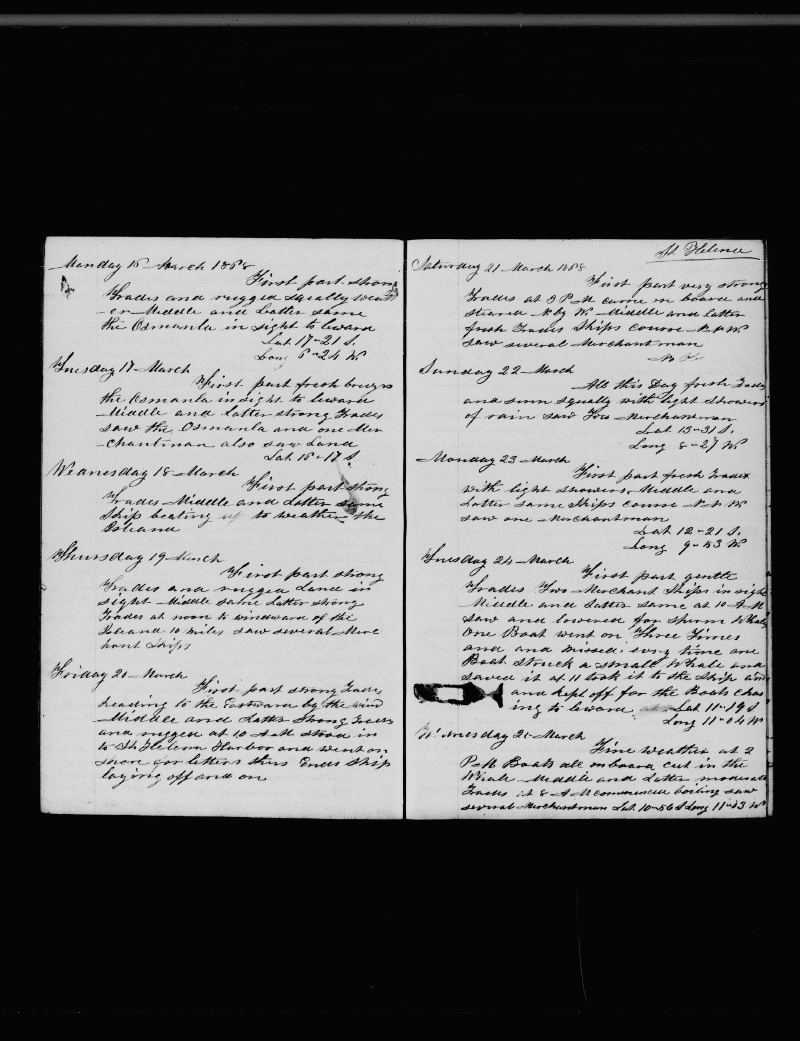 Monday 16 March 1868
First part strong
Trades and rugged squally weath
er Middle and Latter same
the Osmanla in sight to leward
Lat 17-21 S.
Long 6-24 W
Tuesday 17 March
First part fresh breezes
the Osmanla in sight to leward
Middle and Latter strong Trades
saw the Osmanla and one Mer
chantman also saw Land
Lat 16-17 S
Wednesday 18 March
First part strong
Trades Middle and Latter same
Ship beating up to weather the
Island
Thursday 19 March
First part strong
Trades and rugged Land in
sight Middle same Latter strong
Trades at noon to windward of the
Island 10 miles saw several Merc
hant ships
Friday 20 March
First part strong Trades
heading to the Eastward by the wind
Middle and Latter Strong Trades
and rugged at 10 A M stood in
to St Helena Harbor and went on
shore for letters thus Ends Ship
laying off and on
St Helena
Saturday 21 March 1868
First part very strong
Trades at 3 P M came on board and
steared N by W Middle and latter
fresh Trades Ships course N N W
saw several Merchantman
Sunday 22 March
All this Day fresh Trades
and squally with light showers
of rain saw Two Merchantman
Lat 13-31 S.
Long 8-27 W
Monday 23 March
First part fresh Trades
with light showers Middle and
Latter same Ships course N N W
saw one Merchantman
Lat 12-21 S.
Long 9-53 W.
Tuesday 24 March
First part gentle
Trades Two Merchant Ships in sight
Middle and Latter same at 10 A M
saw and lowered for Sperm Whales
One Boat went on Three Times
and and missed every time one
Boat struck a small Whale and
saved it at 11 took it to the Ship and
and kept off for the Boats chas
ing to leward Lat 11-19 S
Long 11-04 W
Wednesday 25 March
Fine weather at 2
P M Boats all on board cut in the
Whale Middle and Latter moderate
Trades at 8 A M commenced boiling saw
several Merchantman Lat 10-56 S Long 11-53 W